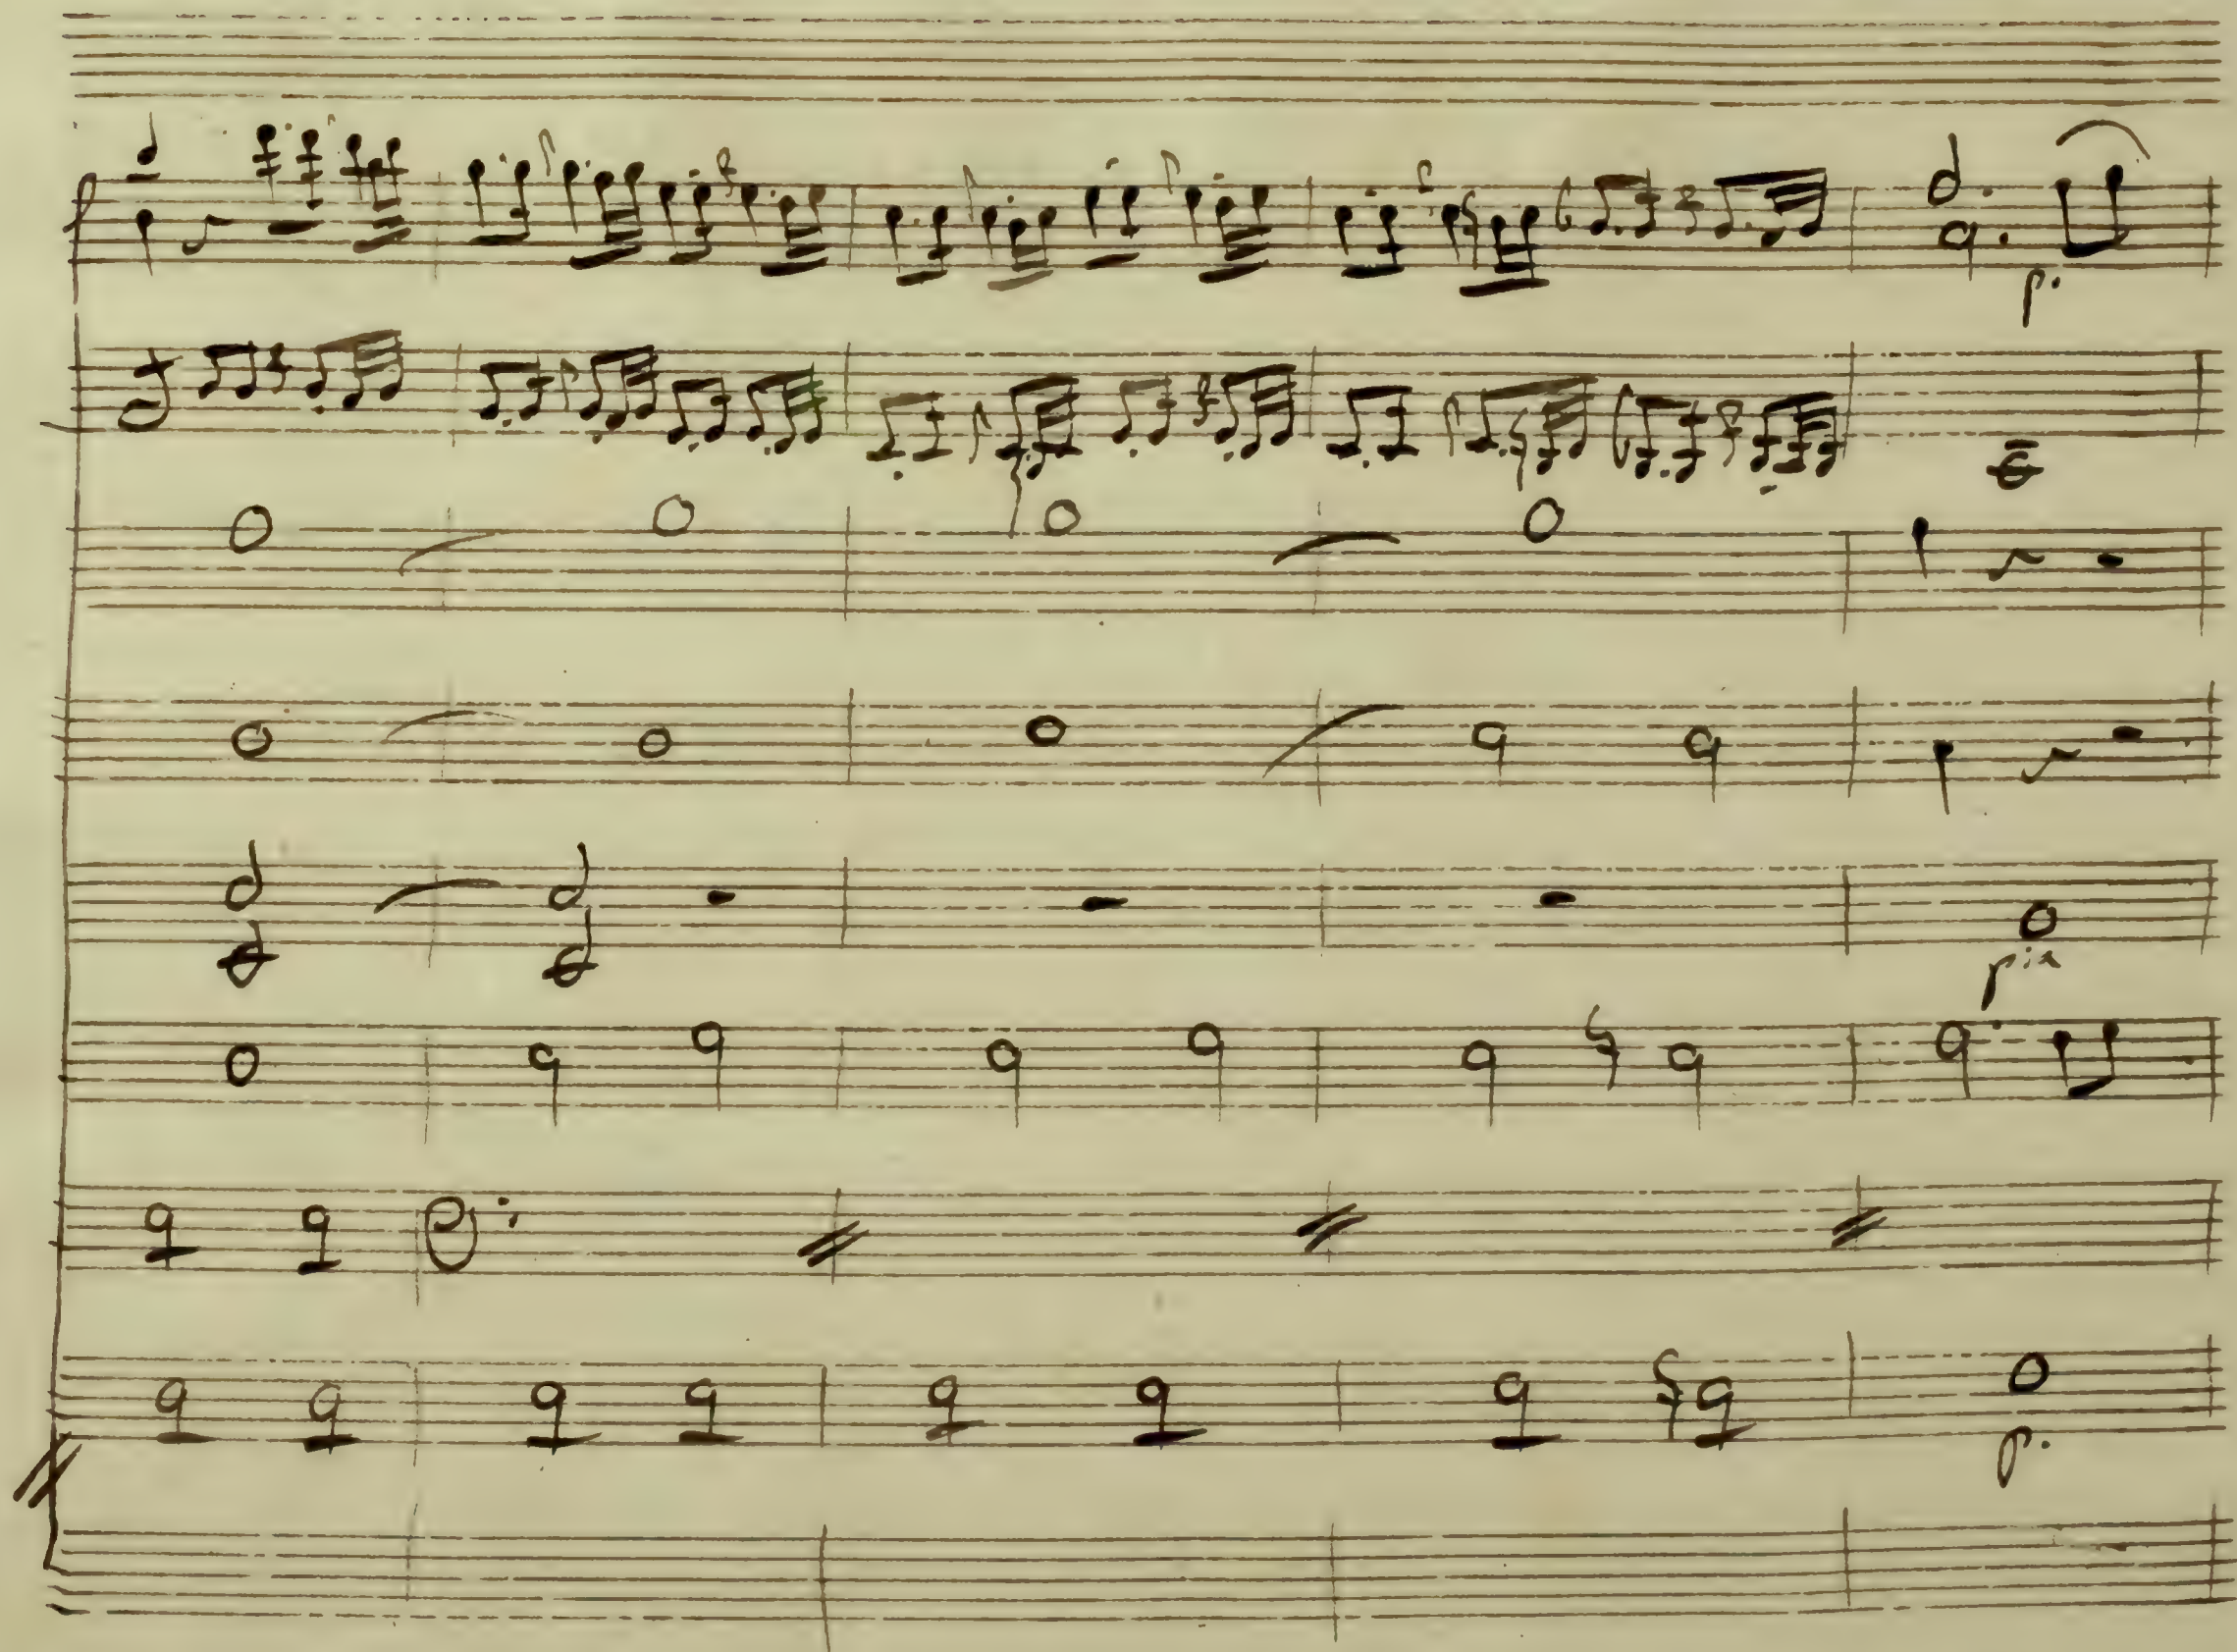 p.
pia
p.